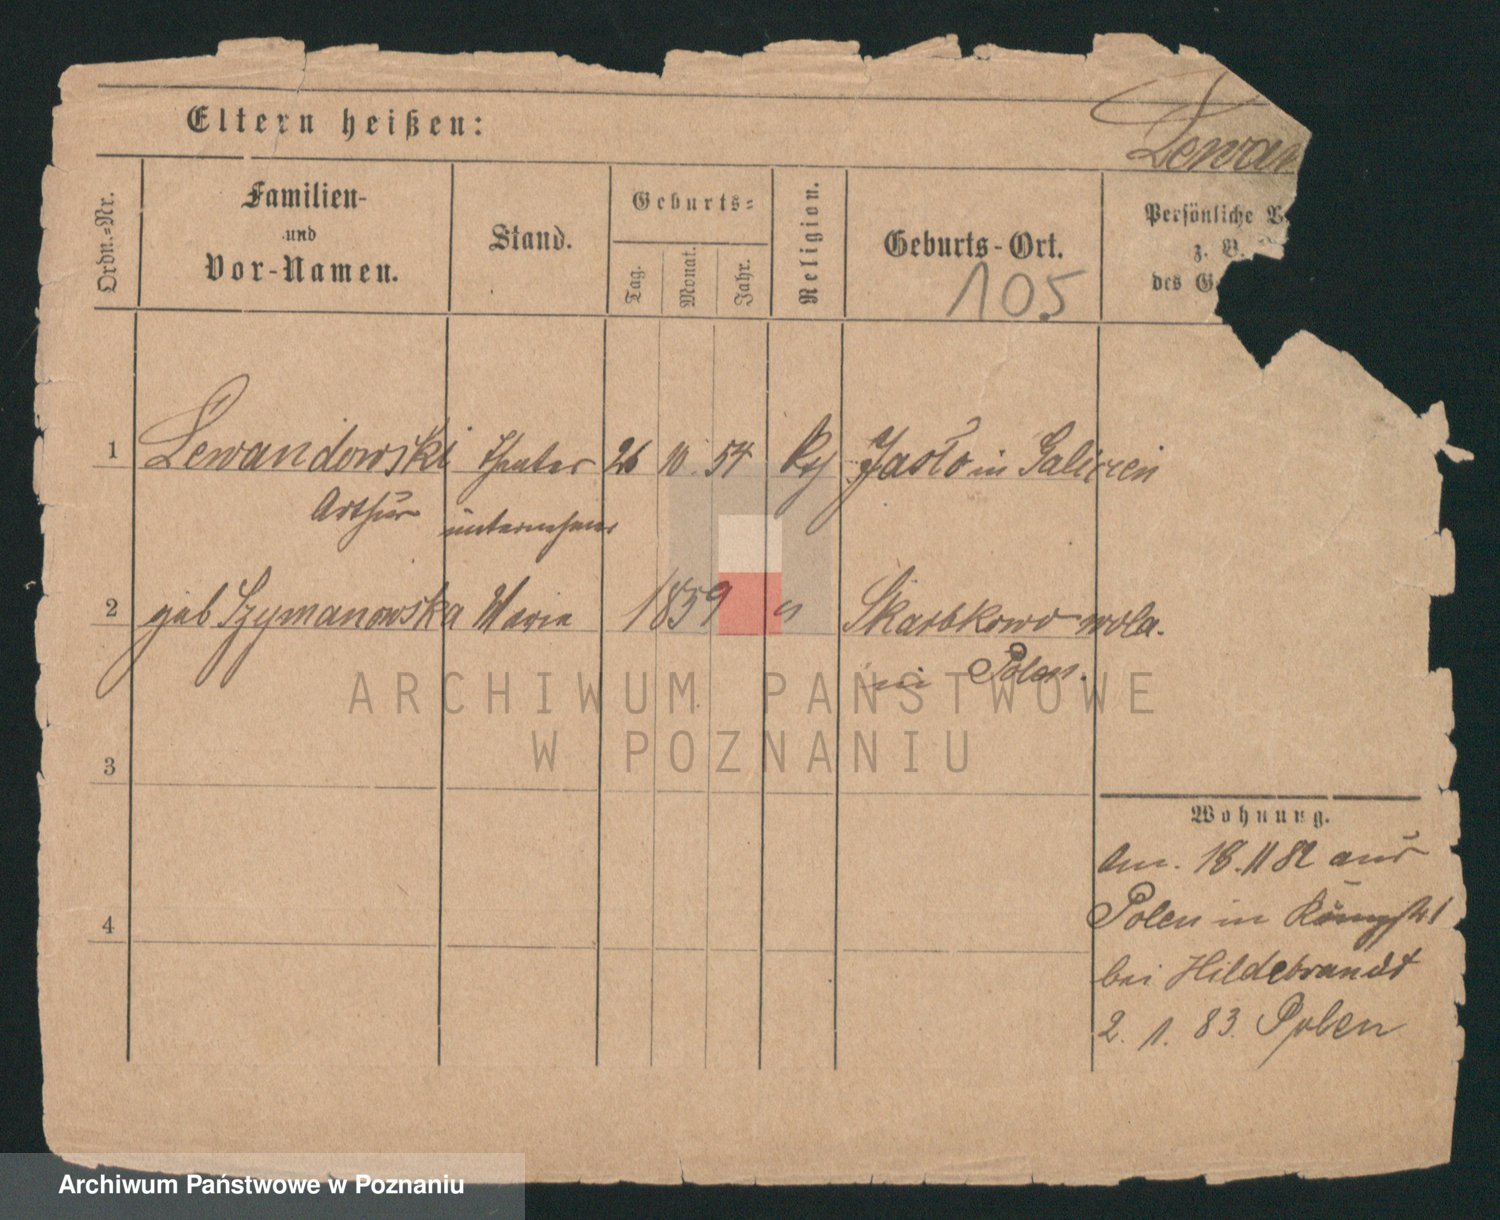 Eltern heißen:
Lewan
Ordn.-Nr.
Familien-
und
Vor-Namen.
Stand.
Geburts-
Tag.
Monat.
Jahr.
Religion.
Geburts-Ort.
105
Persönliche
z. B.
des G
1 Lewandowski Theater 26 10. 54 Jasło in Galizien
Arthur unternehmer
2 geb Szymanowska Marie 1859 " Skarbkowo wola.
in Polen.
ARCHIWUM PAŃSTWOWE
W POZNANIU
3
Wohnung.
Am. 18.11 82 aus
Polen in
4
bei Hildebrandt
2. 1. 83. Polen
Archiwum Państwowe w Poznaniu